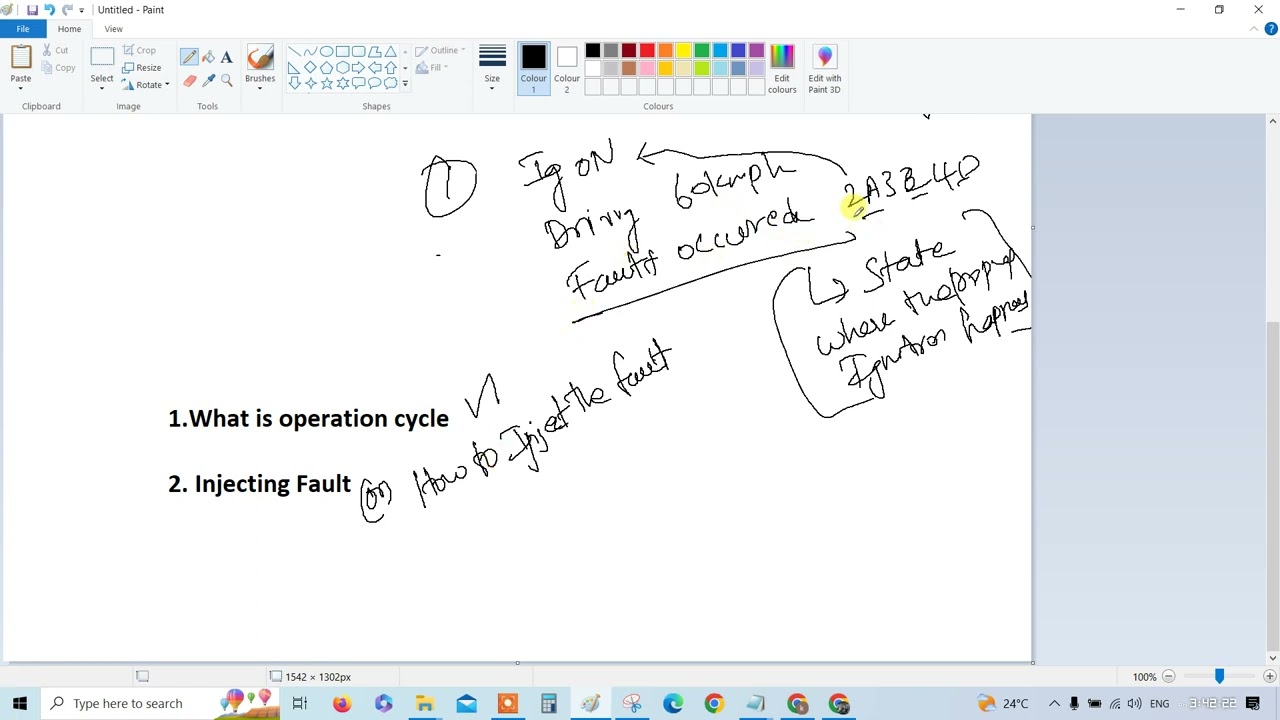 Untitled - Paint
File
Home
View
Paste
Cut
Copy
Clipboard
Select
Crop
Resize
Rotate
Image
Tools
Brushes
Shapes
Outline
Fill
Size
Colour 1
Colour 2
Colours
Edit colours
Edit with Paint 3D
1
Ig ON
Driving 60kmph
Fault occured
2A3B4D
State
where the
Ignition
1.What is operation cycle
2. Injecting Fault
(or) How to Inject the fault
1542 × 1302px
100%
Type here to search
24°C
ENG
3:42:22